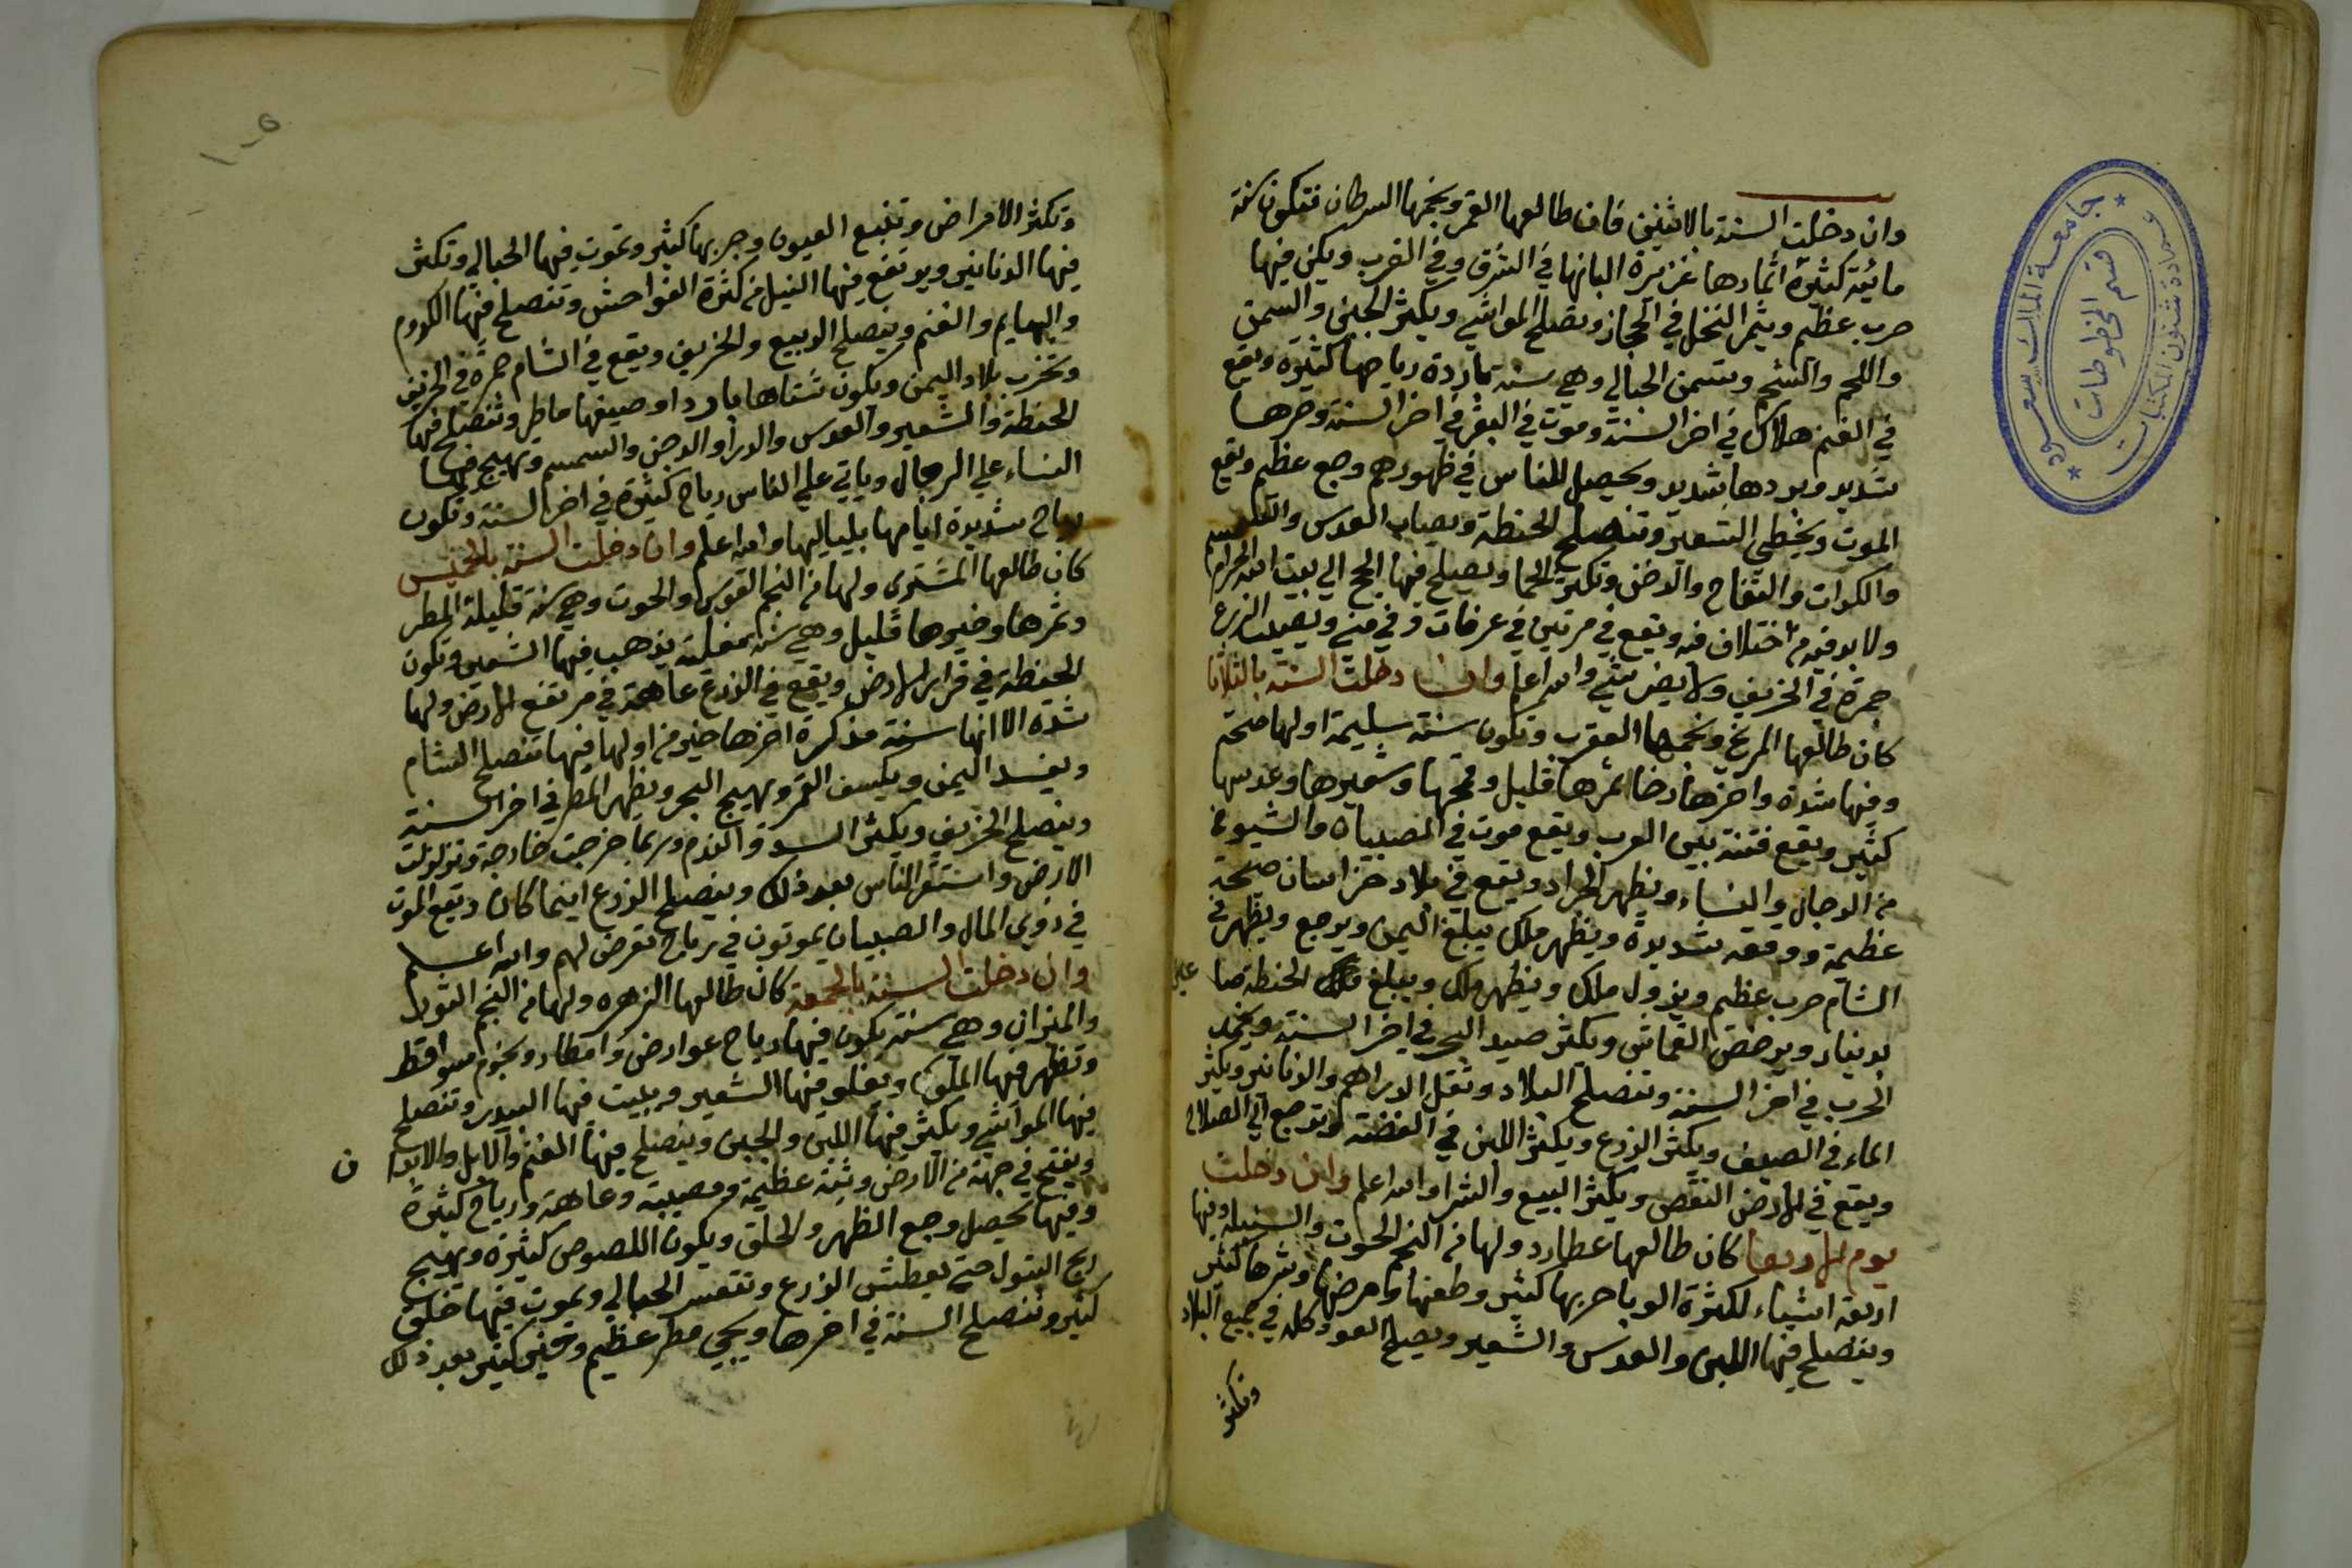 وان دخلت السنة بالاثنين فان طالعها القمر ونجمها السرطان فتكون سنة
مائية كثيرة اثمارها غزيرة البانها في الشرق وفي الغرب ويكن فيها
حرب عظيم ويثمر النخل في الحجاز وتصلح المواشي ويكثر الجبن والسمن
واللحم والشحم وتسمن الحبالي وهي سنة باردة رياحها كثيرة ويقع
في الغنم هلاك في اخر السنة وموت في البقر في اخر السنة وحرها
شديد وبردها شديد ويحصل للناس في ظهورهم وجع عظيم ويقع
الموت ويخطي الشعير وتنصلح الحنطة ويصاب العدس والسمسم
والكراث والتفاح والارض وتكثر الحما ويصلح فيها الحج الي بيت الله الحرام
ولا بد فيه من اختلاف فيه ويقع في مرتين في عرفات وفي منى ويصيب الزرع
حمرة في الخريف ولا يضر شي والله اعلم وان دخلت السنة بالثلاثا
كان طالعها المريخ ونجمها العقرب وتكون سنة سليمة اولها صحة
وفيها شدة واخرها رخا ثمرها قليل وقمحها وشعيرها وعدسها
كثير ويقع فتنة بين العرب ويقع موت في الصبيان والشيوخ
من الرجال والنساء ويظهر الجراد ويقع في بلاد خراسان صيحة
عظيمة ووقعه شديدة ويظهر ملك يبلغ اليمن ويرجع ويظهر في
الشام حرب عظيم ويزول ملك ويظهر ملك ويبلغ الحنطة صاعان
بدينار ويرخص القماش ويكثر صيد البحر في اخر السنة ويخمد
الحرب في اخر السنة وتنصلح البلاد وتقل الدراهم والدنانير ويكثر
الماء في الصيف ويكثر الزرع ويكثر اللبن في الفضة وترجع الي الصلاح
ويقع في الارض النقص ويكثر البيع والشرا والله اعلم وان دخلت
يوم الاربعا كان طالعها عطارد ولها من النجم الحوت والسنبلة وفيها
اربعة اشياء لكثرة الوبا حربها كثير وطعنها وامرضها وشرها كثير
وينصلح فيها اللبن والعدس والشعير ويصلح العود كله في جميع البلاد
وتكثر
جامعة الملك سعود
عمادة شئون المكتبات
قسم المخطوطات
وتكثر الامراض وتنبع العيون وحربها كثير وتموت فيها الحبالي وتكثر
فيها الدنانير ويرتفع فيها النيل من كثرة الفواحش وتنصلح فيها الكروم
والبهايم والغنم وينصلح الربيع والخريف ويقع في الشام حمرة في الخريف
وتخرب بلاد اليمن ويكون شتاها باردا وصيفها ماطر وتنصلح فيها
الحنطة والشعير والعدس والدرا والدخن والسمسم وتهيج فيها
النساء علي الرجال وياتي علي الناس رياح كثيرة في اخر السنة وتكون
رياح شديدة ايامها بلياليها والله اعلم وان دخلت السنة بالخميس
كان طالعها المشترى ولها من النجم القوس والحوت وهي سنة قليلة المطر
وثمرها وخيرها قليل وهي سنة يذهب فيها الشعير وتكون
الحنطة في قرار الارض ويقع في الزرع عاهة في مرتفع الارض ولها
شدة الا انها سنة مذكرة اخرها خير من اولها فيها تنصلح الشام
ويفسد اليمن ويكسف القمر ويهيج البحر ويظهر المطر في اخر السنة
وينصلح الخريف ويكثر السرقة والندم وربما خرجت خارجة وتزلزلت
الارض واستقر الناس بعد ذلك وينصلح الزرع اينما كان ويقع الموت
في ذوي المال والصبيان يموتون في رياح تعرض لهم والله اعلم
وان دخلت السنة بالجمعة كان طالعها الزهره ولها من النجم الثور
والميزان وهي سنة يكون فيها رياح عوارض وامطار ونجوم سواقط
وتظهر فيها الملوك ويغلو فيها الشعير ويبيت فيها البيدر وتنصلح
فيها المواشي ويكثر فيها اللبن والجبن وينصلح فيها الغنم والابل والابدان
ويفتح في جهة من الارض وثبة عظيمة ومصيبة وعاهة وارياح كثيرة
وفيها يحصل وجع الظهر والحلق ويكون اللصوص كثيرة ويهيج
ريح البتول حتى يعطش الزرع وتتعسر الحبالي ويموت فيها خلق
كثير وتنصلح السنة في اخرها ويجي مطر عظيم وخير كثير بعد ذلك